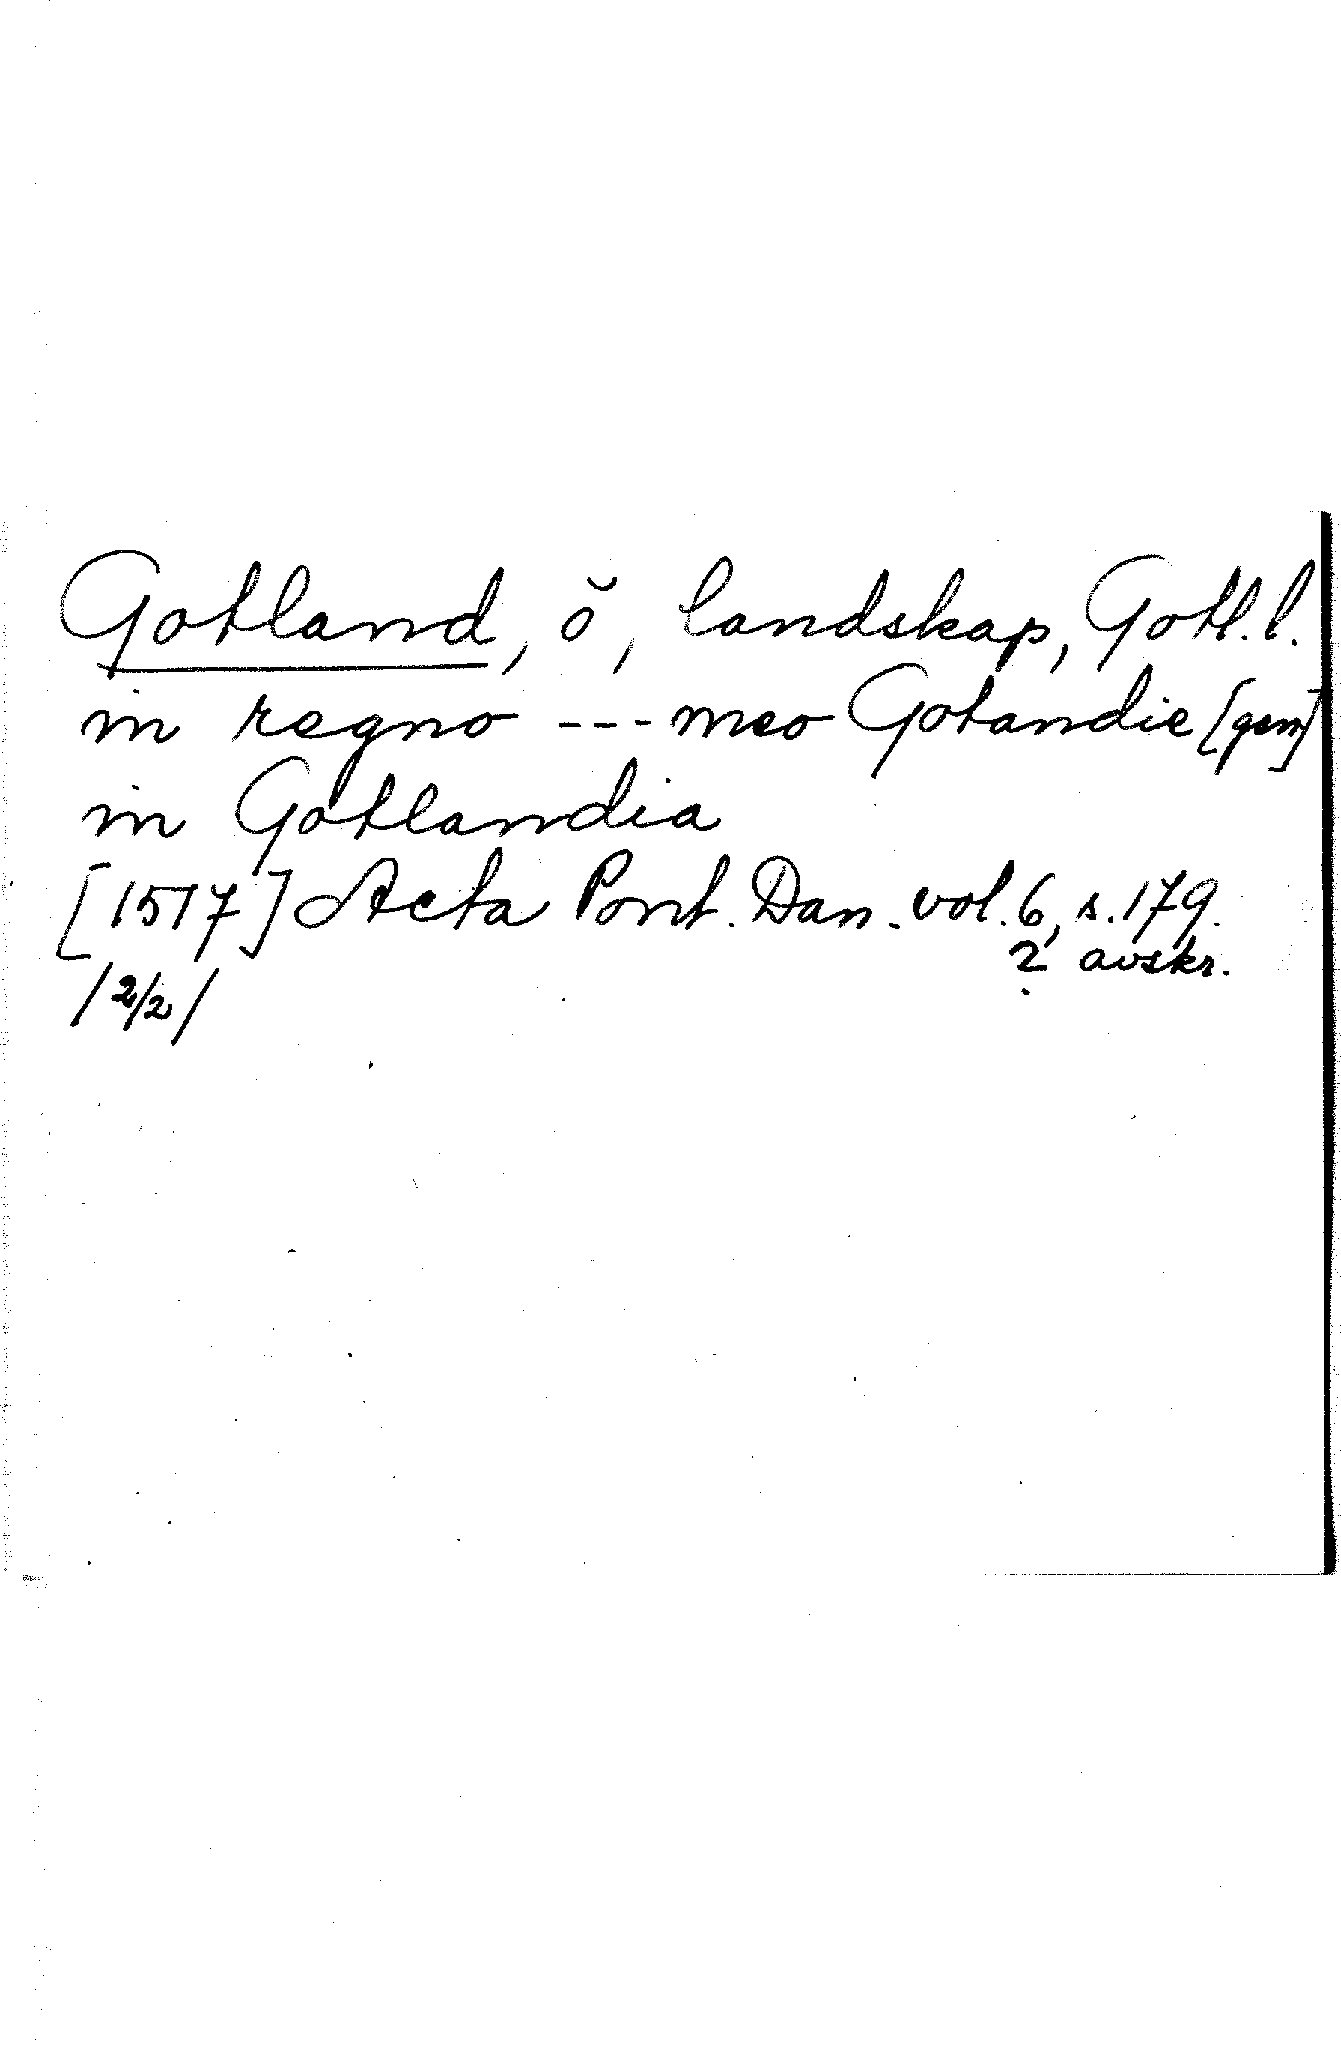 Gotland, ö, landskap, Gotl. l.
in regno --- meo Gotandie [gen]
in Gotlandia
[1517] Acta Pont. Dan. vol. 6, s. 179.
2 avskr.
/2/2/